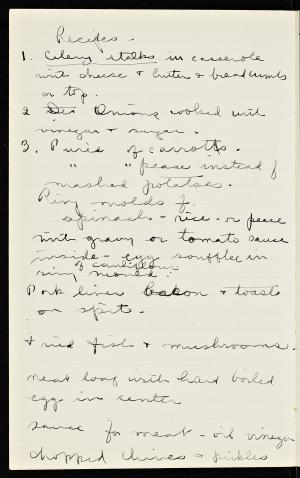 Recipes.
1. Celery stalks in casserole
with cheese & butter & breadcrumbs
on top.
2 Onions cooked with
vinegar & sugar.
3. Puree of carrotts.
" " pease instead of
mashed potatoes.
Ring molds of
spinach - rice - or pease
with gravy or tomato sauce
inside - egg souffle in
ring mould of cauliflour
Pork liver bacon & toasts
on spit.
Fried fish & mushrooms.
meat loaf with hard boiled
egg in center
sauce for meat - oil vinegar
chopped chives & pickles